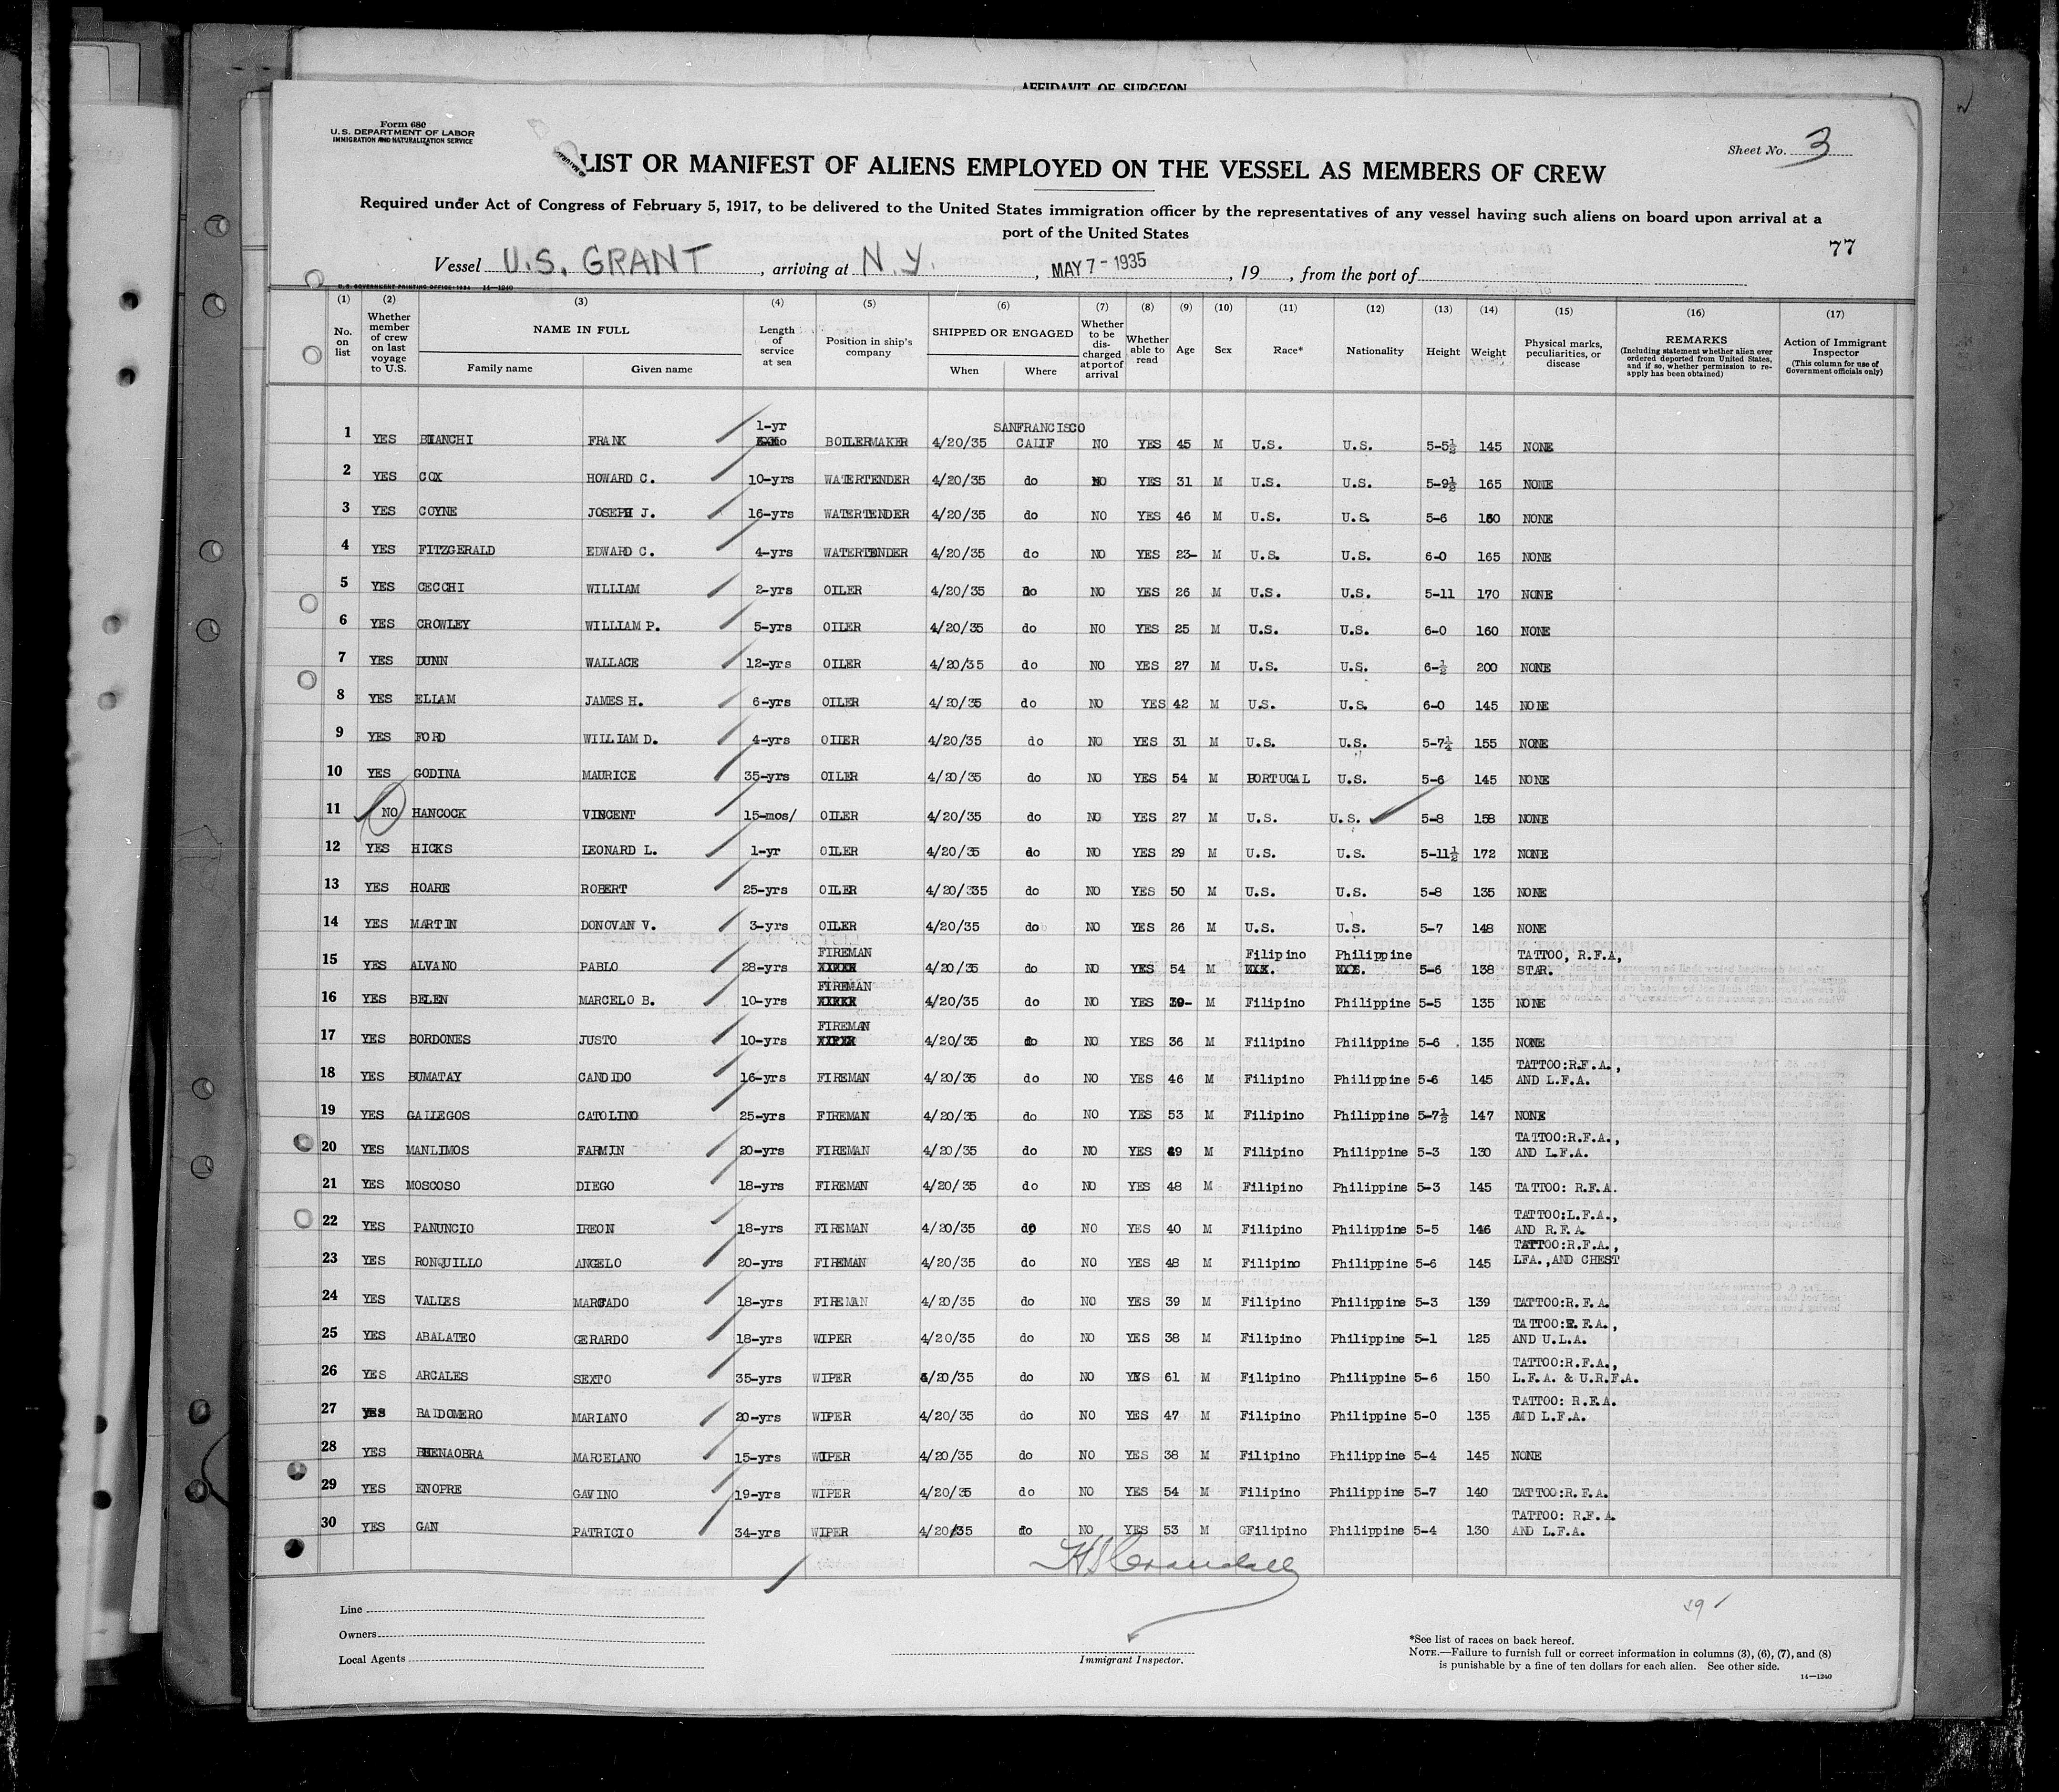 AFFIDAVIT OF SURGEON
Form 680
U.S. DEPARTMENT OF LABOR
IMMIGRATION AND NATURALIZATION SERVICE
Sheet No. 3
LIST OR MANIFEST OF ALIENS EMPLOYED ON THE VESSEL AS MEMBERS OF CREW
Required under Act of Congress of February 5, 1917, to be delivered to the United States immigration officer by the representatives of any vessel having such aliens on board upon arrival at a
port of the United States
77
Vessel U.S. GRANT, arriving at N.Y., MAY 7-1935, 19, from the port of
U.S. GOVERNMENT PRINTING OFFICE: 1934 14-1240
(1) (2) (3) (4) (5) (6) (7) (8) (9) (10) (11) (12) (13) (14) (15) (16) (17)
No. on list
Whether member of crew on last voyage to U.S.
NAME IN FULL
Family name Given name
Length of service at sea
Position in ship's company
SHIPPED OR ENGAGED
When Where
Whether to be discharged at port of arrival
Whether able to read
Age
Sex
Race*
Nationality
Height
Weight
Physical marks, peculiarities, or disease
REMARKS
(Including statement whether alien ever ordered deported from United States, and if so, whether permission to reapply has been obtained)
Action of Immigrant Inspector
(This column for use of Government officials only)
1 YES BIANCHI FRANK 1-yr BOILERMAKER 4/20/35 SANFRANCISCO CALIF NO YES 45 M U.S. U.S. 5-5½ 145 NONE
2 YES COX HOWARD C. 10-yrs WATERTENDER 4/20/35 do NO YES 31 M U.S. U.S. 5-9½ 165 NONE
3 YES COYNE JOSEPH J. 16-yrs WATERTENDER 4/20/35 do NO YES 46 M U.S. U.S. 5-6 160 NONE
4 YES FITZGERALD EDWARD C. 4-yrs WATERTENDER 4/20/35 do NO YES 23- M U.S. U.S. 6-0 165 NONE
5 YES CECCHI WILLIAM 2-yrs OILER 4/20/35 do NO YES 26 M U.S. U.S. 5-11 170 NONE
6 YES CROWLEY WILLIAM P. 5-yrs OILER 4/20/35 do NO YES 25 M U.S. U.S. 6-0 160 NONE
7 YES DUNN WALLACE 12-yrs OILER 4/20/35 do NO YES 27 M U.S. U.S. 6-½ 200 NONE
8 YES ELLAM JAMES H. 6-yrs OILER 4/20/35 do NO YES 42 M U.S. U.S. 6-0 145 NONE
9 YES FORD WILLIAM D. 4-yrs OILER 4/20/35 do NO YES 31 M U.S. U.S. 5-7¼ 155 NONE
10 YES GODINA MAURICE 35-yrs OILER 4/20/35 do NO YES 54 M PORTUGAL U.S. 5-6 145 NONE
11 NO HANCOCK VINCENT 15-mos/ OILER 4/20/35 do NO YES 27 M U.S. U.S. 5-8 158 NONE
12 YES HICKS LEONARD L. 1-yr OILER 4/20/35 do NO YES 29 M U.S. U.S. 5-11½ 172 NONE
13 YES HOARE ROBERT 25-yrs OILER 4/20/335 do NO YES 50 M U.S. U.S. 5-8 135 NONE
14 YES MARTIN DONOVAN V. 3-yrs OILER 4/20/35 do NO YES 26 M U.S. U.S. 5-7 148 NONE
15 YES ALVANO PABLO 28-yrs FIREMAN 4/20/35 do NO YES 54 M Filipino Philippine 5-6 138 TATTOO, R.F.A, STAR.
16 YES BELEN MARCELO B. 10-yrs FIREMAN 4/20/35 do NO YES 39- M Filipino Philippine 5-5 135 NONE
17 YES BORDONES JUSTO 10-yrs FIREMAN 4/20/35 do NO YES 36 M Filipino Philippine 5-6 135 NONE
18 YES BUMATAY CANDIDO 16-yrs FIREMAN 4/20/35 do NO YES 46 M Filipino Philippine 5-6 145 TATTOO:R.F.A., AND L.F.A.
19 YES GALLEGOS CATOLINO 25-yrs FIREMAN 4/20/35 do NO YES 53 M Filipino Philippine 5-7½ 147 NONE
20 YES MANLIMOS FARMIN 20-yrs FIREMAN 4/20/35 do NO YES 49 M Filipino Philippine 5-3 130 TATTOO:R.F.A., AND L.F.A.
21 YES MOSCOSO DIEGO 18-yrs FIREMAN 4/20/35 do NO YES 48 M Filipino Philippine 5-3 145 TATTOO: R.F.A.
22 YES PANUNCIO IREON 18-yrs FIREMAN 4/20/35 do NO YES 40 M Filipino Philippine 5-5 146 TATTOO:L.F.A., AND R.F.A.
23 YES RONQUILLO ANGELO 20-yrs FIREMAN 4/20/35 do NO YES 48 M Filipino Philippine 5-6 145 TATTOO:R.F.A., LFA.,AND CHEST
24 YES VALLES MARCADO 18-yrs FIREMAN 4/20/35 do NO YES 39 M Filipino Philippine 5-3 139 TATTOO:R.F.A.
25 YES ABALATEO GERARDO 18-yrs WIPER 4/20/35 do NO YES 38 M Filipino Philippine 5-1 125 TATTOO:R.F.A., AND U.L.A.
26 YES ARCALES SEXTO 35-yrs WIPER 4/20/35 do NO YES 61 M Filipino Philippine 5-6 150 TATTOO:R.F.A., L.F.A. & U.R.F.A.
27 YES BALDOMERO MARIANO 20-yrs WIPER 4/20/35 do NO YES 47 M Filipino Philippine 5-0 135 TATTOO: R.F.A. AND L.F.A.
28 YES BHENAOBRA MARCELANO 15-yrs WIPER 4/20/35 do NO YES 38 M Filipino Philippine 5-4 145 NONE
29 YES ENOPRE GAVINO 19-yrs WIPER 4/20/35 do NO YES 54 M Filipino Philippine 5-7 140 TATTOO:R.F.A.
30 YES GAN PATRICIO 34-yrs WIPER 4/20/35 do NO YES 53 M GFilipino Philippine 5-4 130 TATTOO: R.F.A. AND L.F.A.
H S Crandall
Line
Owners
Local Agents
Immigrant Inspector.
*See list of races on back hereof.
NOTE.—Failure to furnish full or correct information in columns (3), (6), (7), and (8)
is punishable by a fine of ten dollars for each alien. See other side.
14—1240